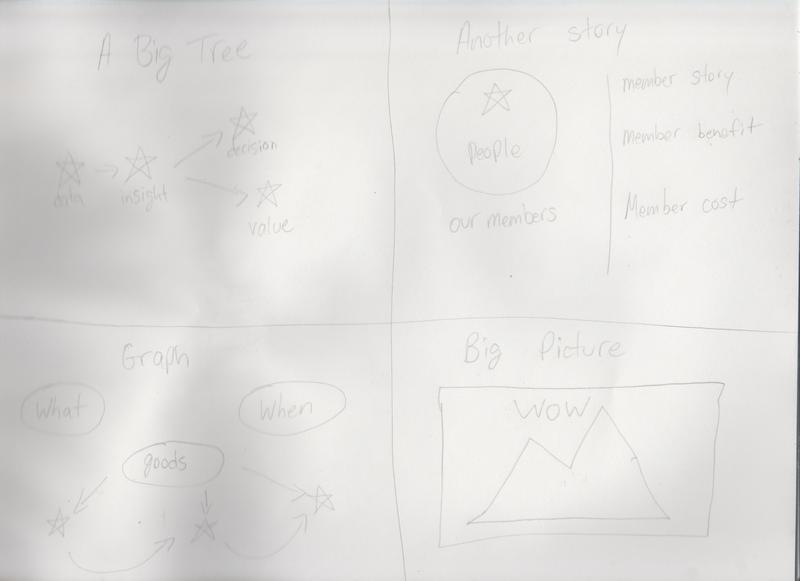 A Big Tree
data
insight
decision
value
Another story
People
our members
member story
member benefit
Member cost
Graph
What
When
goods
Big Picture
WOW